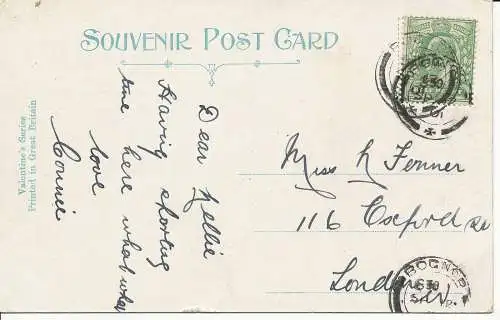 SOUVENIR POST CARD
Valentine's Series
Printed in Great Britain
Dear Nellie
Having sporting
time here what what
love
Connie
Miss N Fenner
116 Oxford Rd
London W.
BOGNOR
630
BOGNOR
630
SP